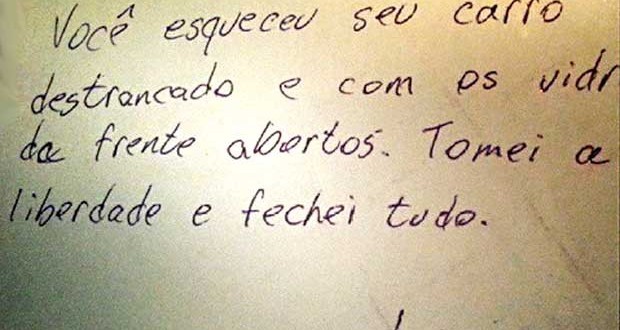 Você esqueceu seu carro
destrancado e com os vidr
da frente abertos. Tomei a
liberdade e fechei tudo.